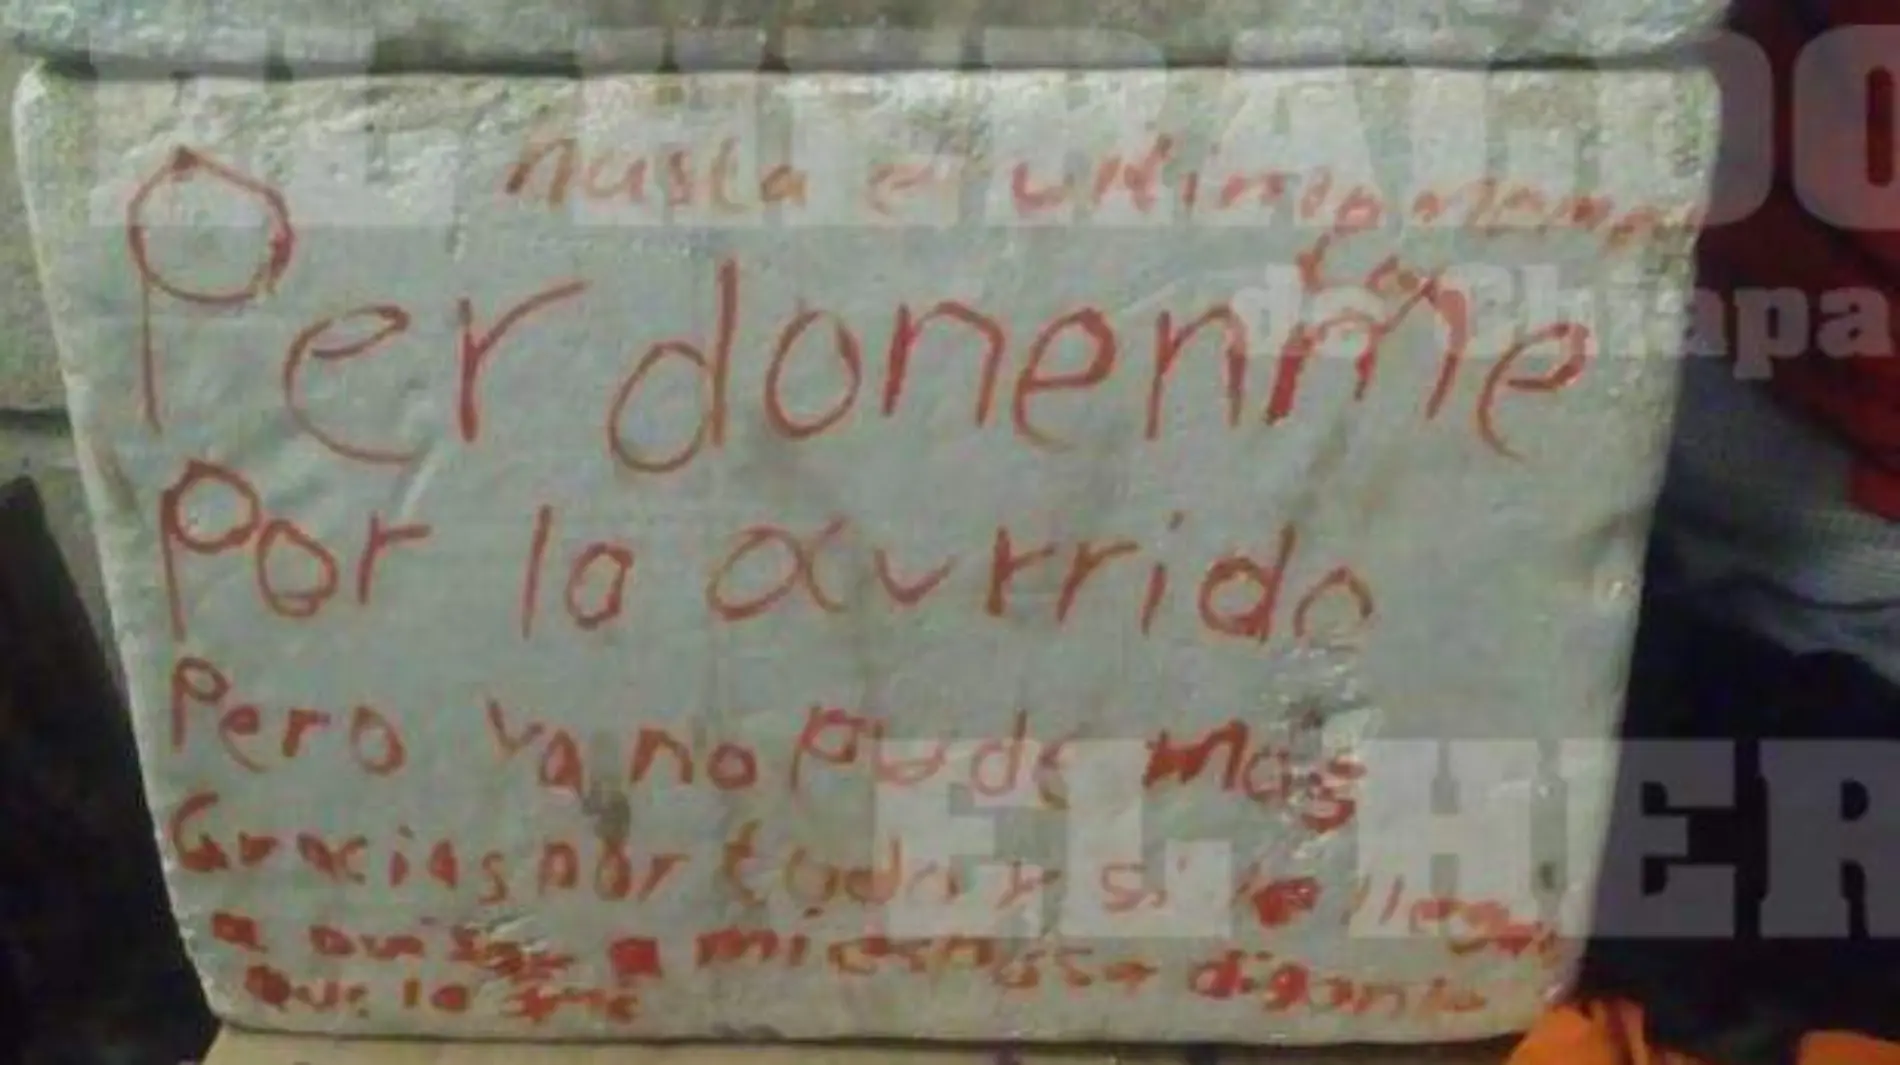 EL HERALDO
de Chiapa
hasta el ultimo momen
Perdonenme
Por lo ocurrido
Pero ya no pude mas
Gracias por todo y si le llegan
a avisar a mi esposa diganle
que la ame
EL HER